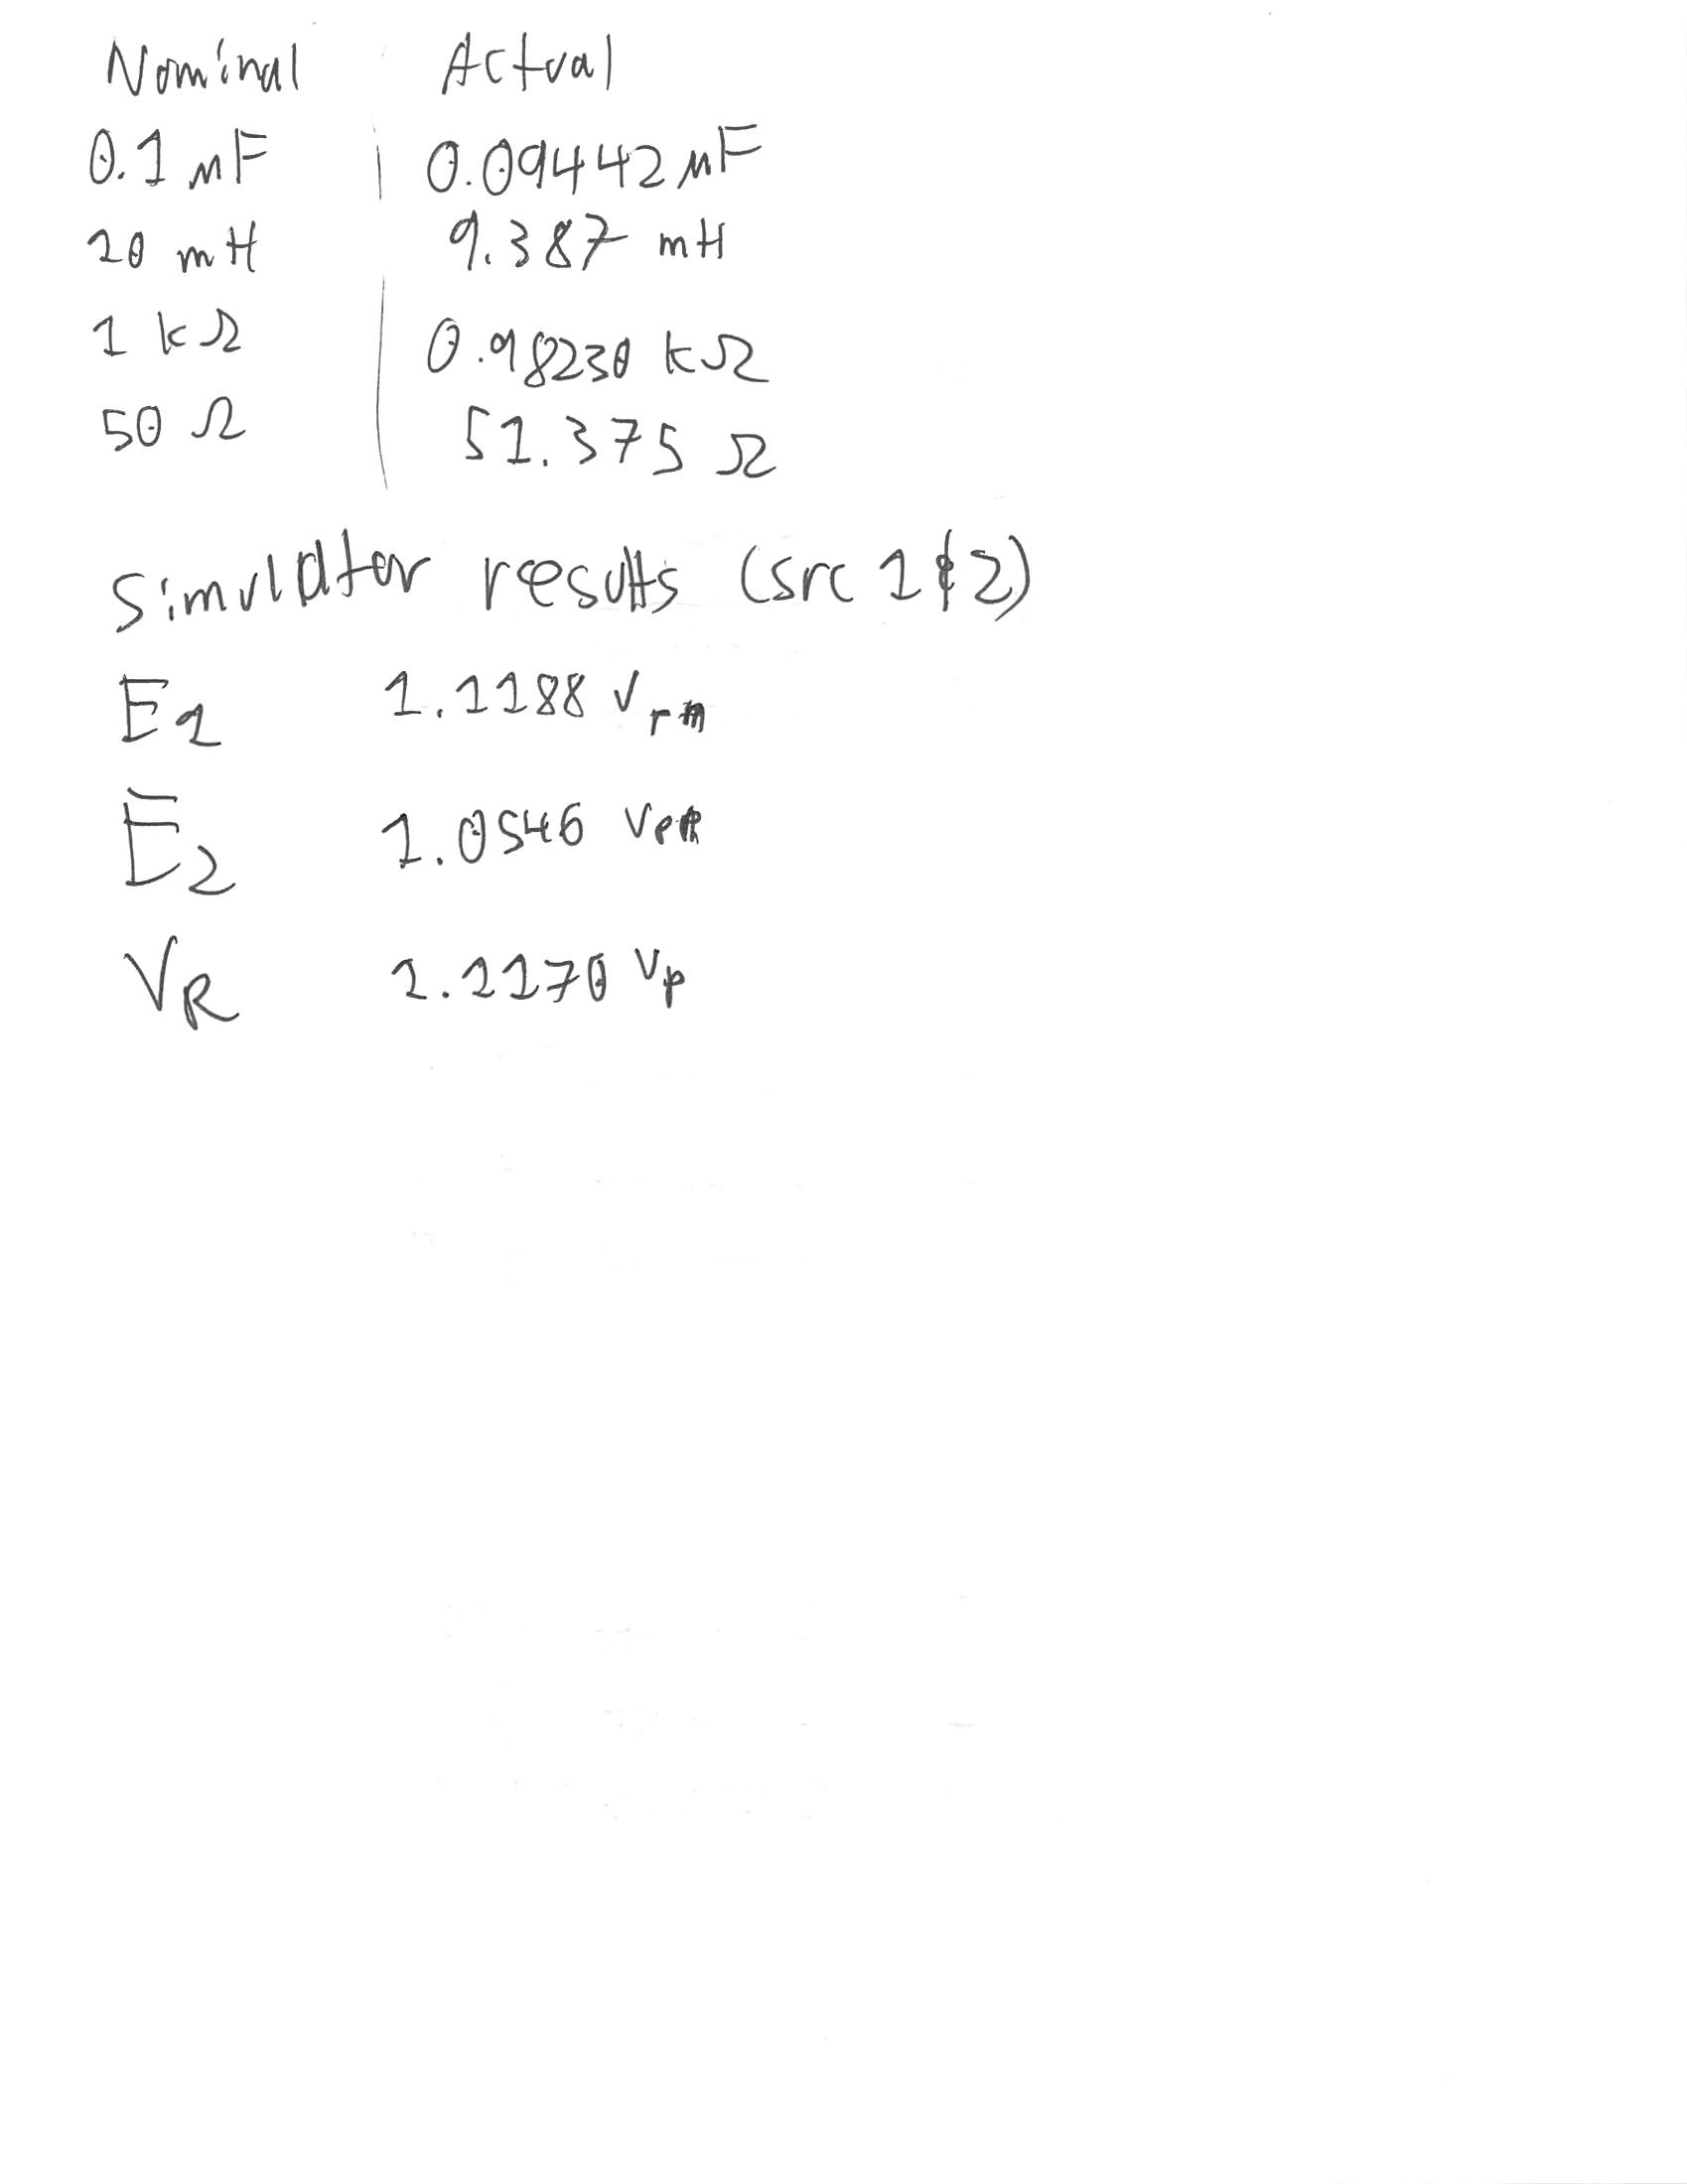 Nominal Actual
0.1 μF 0.09442 μF
10 mH 9.387 mH
1 kΩ 0.98230 kΩ
50 Ω 51.375 Ω
Simulator results (src 1 & 2)
E1 1.1188
E2 1.0546
VR 1.1170 Vp